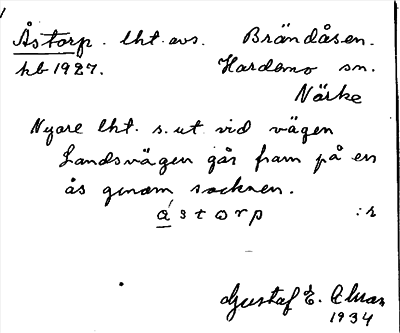 Åstorp. lht. avs. Brändåsen.
kb 1927. Hardemo sn.
Närke
Nyare lht. s. ut vid vägen
Landsvägen går fram på en
ås genom socknen.
åstorp :s
Gustaf E. Alman
1934